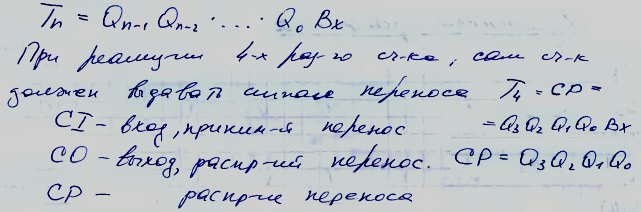 Tn = Qn-1 Qn-2 · .... · Q0 Вх
При реализации 4-х раз-го сч-ка, сам сч-к
должен выдавать сигнал переноса T4 = CP =
CI - вход, приним-й перенос = Q3 Q2 Q1 Q0 Вх
CO - выход, распр-ий перенос. CP = Q3 Q2 Q1 Q0
CP - распр-ие переноса